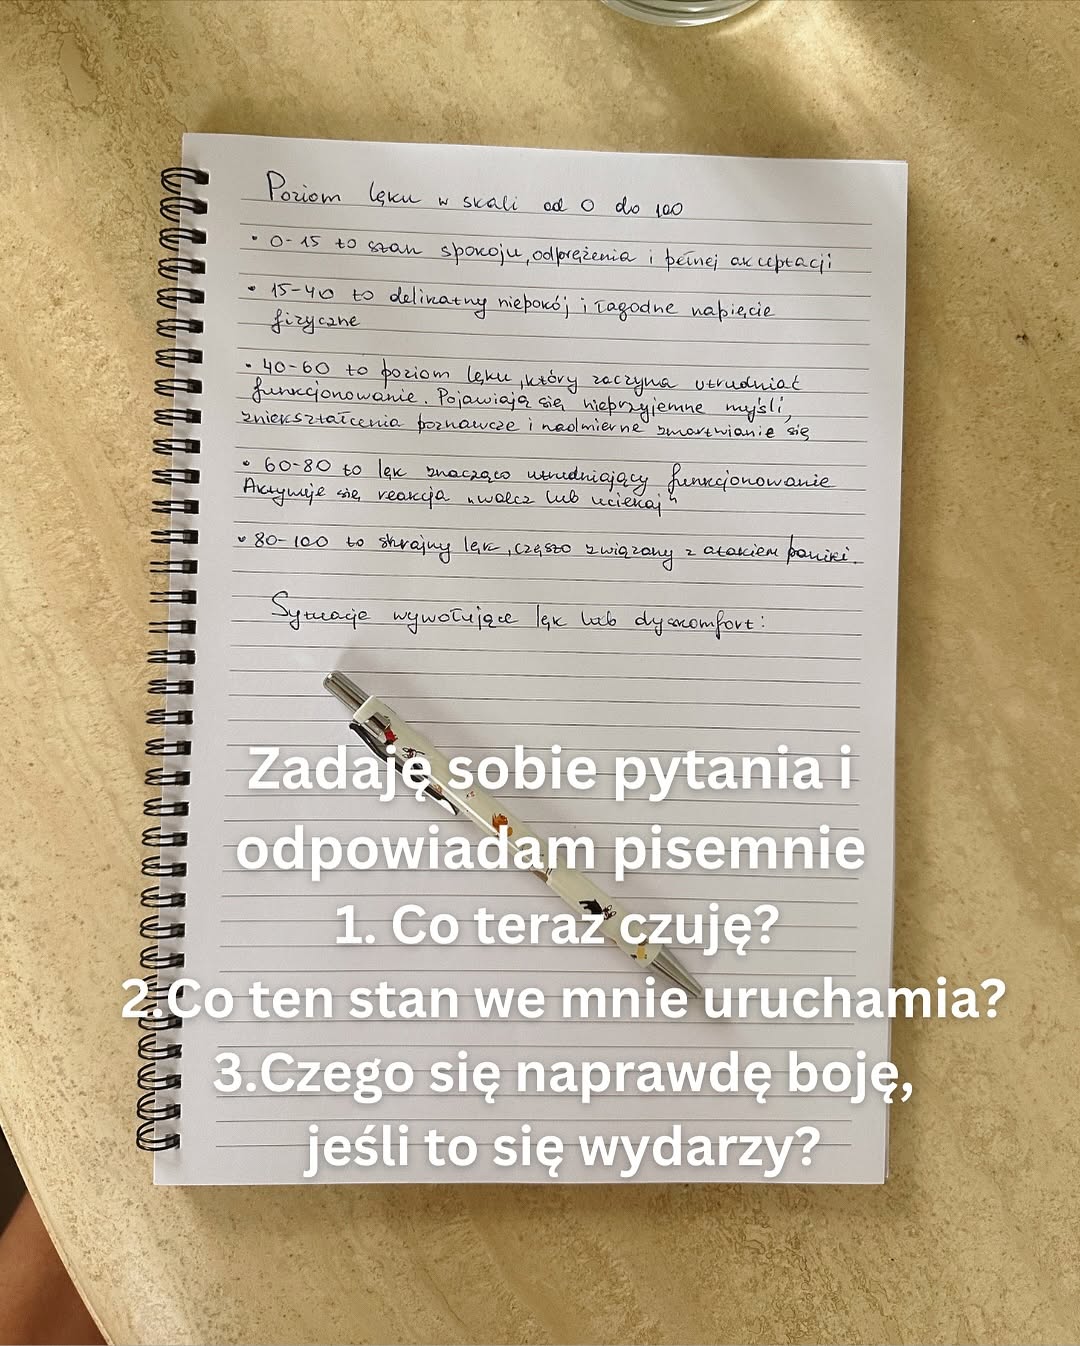 Poziom lęku w skali od 0 do 100
• 0-15 to stan spokoju, odprężenia i pełnej akceptacji
• 15-40 to delikatny niepokój i łagodne napięcie
fizyczne
• 40-60 to poziom lęku, który zaczyna utrudniać
funkcjonowanie. Pojawiają się nieprzyjemne myśli,
zniekształcenia poznawcze i nadmierne zmartwianie się
• 60-80 to lęk znacząco utrudniający funkcjonowanie
Aktywuje się reakcja „walcz lub uciekaj"
• 80-100 to skrajny lęk, często związany z atakiem paniki.
Sytuacje wywołujące lęk lub dyskomfort:
Zadaję sobie pytania i
odpowiadam pisemnie
1. Co teraz czuję?
2.Co ten stan we mnie uruchamia?
3.Czego się naprawdę boję,
jeśli to się wydarzy?